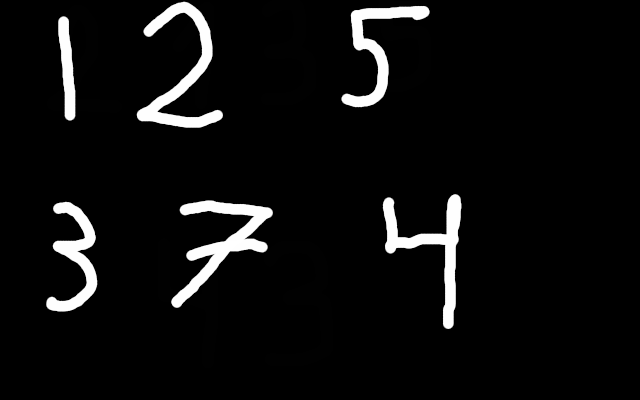 1 2 5
3 7 4